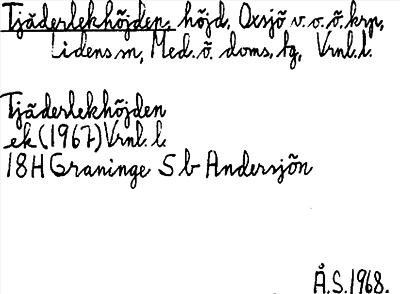 Tjäderlekhöjden, höjd, Oxsjö v.o.ö.krp,
Lidens sn, Med.ö. doms.tg, Vrnl.l.
Tjäderlekhöjden
ek(1967)Vrnl.l.
18H Graninge S b Andersjön
Å.S.1968.